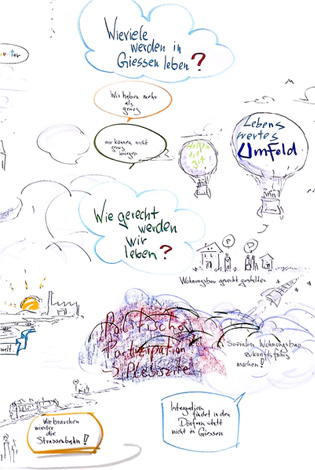 Wieviele
werden in
Giessen leben?
Wir haben mehr
als
genug
wir können nicht
genug
kriegen
Lebens
wertes
Umfeld
Wie gerecht
werden
wir
leben?
P
P
Wohnungsbau gerecht gestalten
Politische
Partizipation
Sozialen Wohnungsbau
zukunftsfähig
machen!
Wir brauchen
wieder
die
Strassenbahn!
Integration
findet in den
Dörfern statt
nicht in Giessen